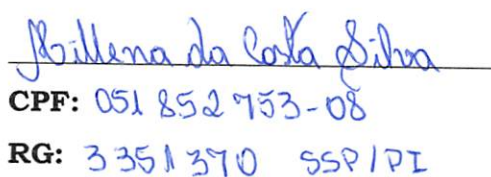 Millena da Costa Silva
CPF: 051 852 753-08
RG: 3351370 SSP/PI